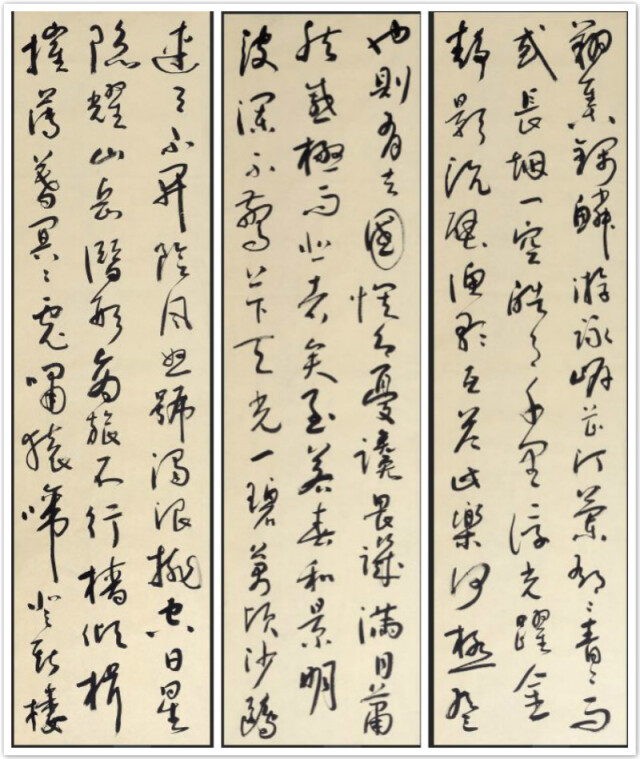 連月不開陰風怒號濁浪排空日星
隱耀山岳潛形商旅不行檣傾楫
摧薄暮冥々虎嘯猿啼登斯樓
也則有去國懷鄉憂讒畏譏滿目蕭
然感極而悲者矣至若春和景明
波瀾不驚上下天光一碧萬頃沙鷗
翔集錦鱗游泳岸芷汀蘭郁々青々而
或長煙一空皓月千里浮光躍金
靜影沉璧漁歌互答此樂何極登